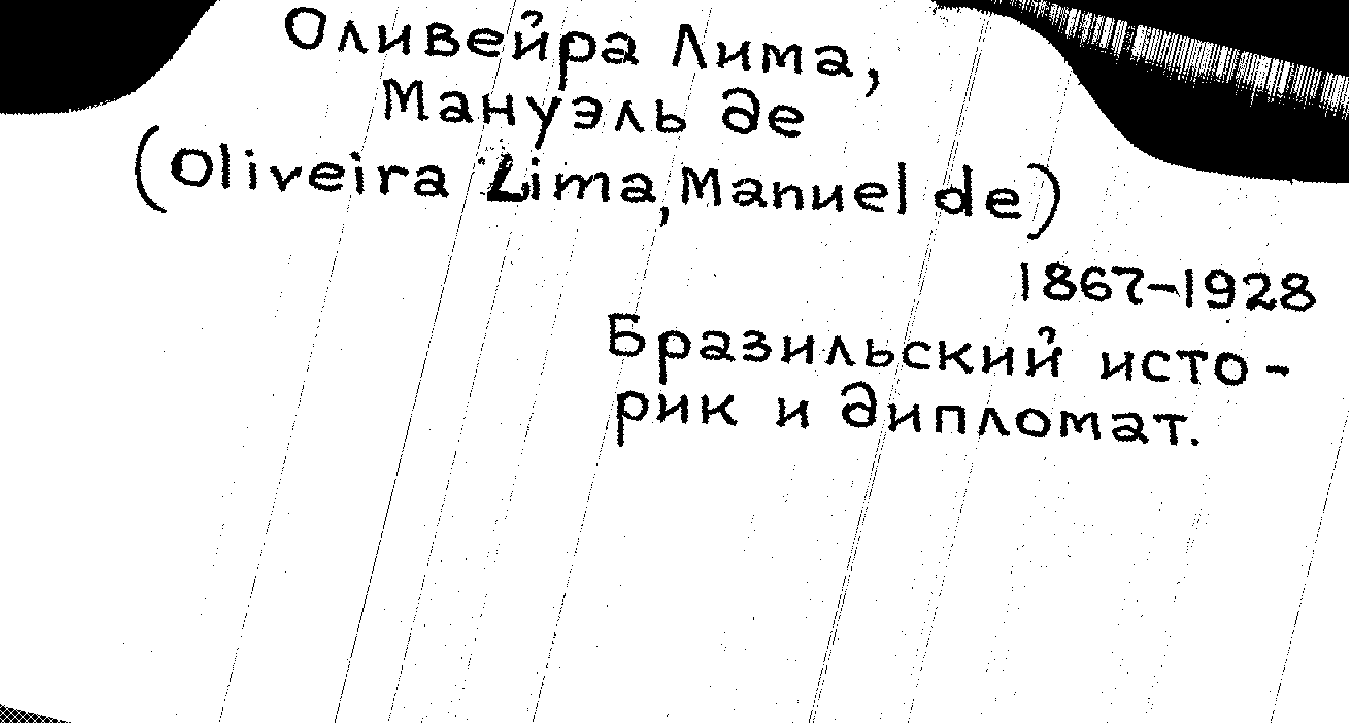 Оливейра Лима,
Мануэль де
(Oliveira Lima, Manuel de)
1867-1928
Бразильский исто-
рик и дипломат.